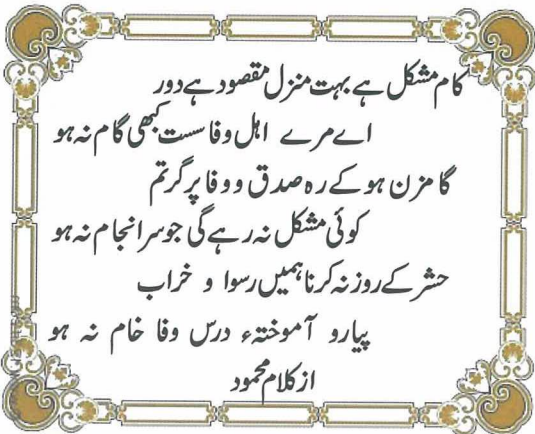 کام مشکل ہے بہت منزل مقصود ہے دور
اے مرے اہل وفا سست کبھی گام نہ ہو
گامزن ہو کے رہ صدق و وفا پر گر تم
کوئی مشکل نہ رہے گی جو سر انجام نہ ہو
حشر کے روز نہ کرنا ہمیں رسوا و خراب
پیارو آموختہء درس وفا خام نہ ہو
از کلام محمود